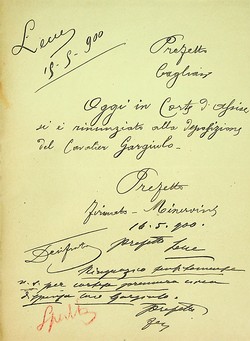 Lecce
15-5-900
Prefetto
Cagliari
Oggi in Corte d'Assise
si è rinunziato alla deposizione
del Cavalier Gargiulo.
Prefetto
Firmato - Minervini
16.5.900.
Decifrato
Prefetto Lecce
Ringrazio
V. S. per cortese premura circa
Gargiulo.
Prefetto
Spedito